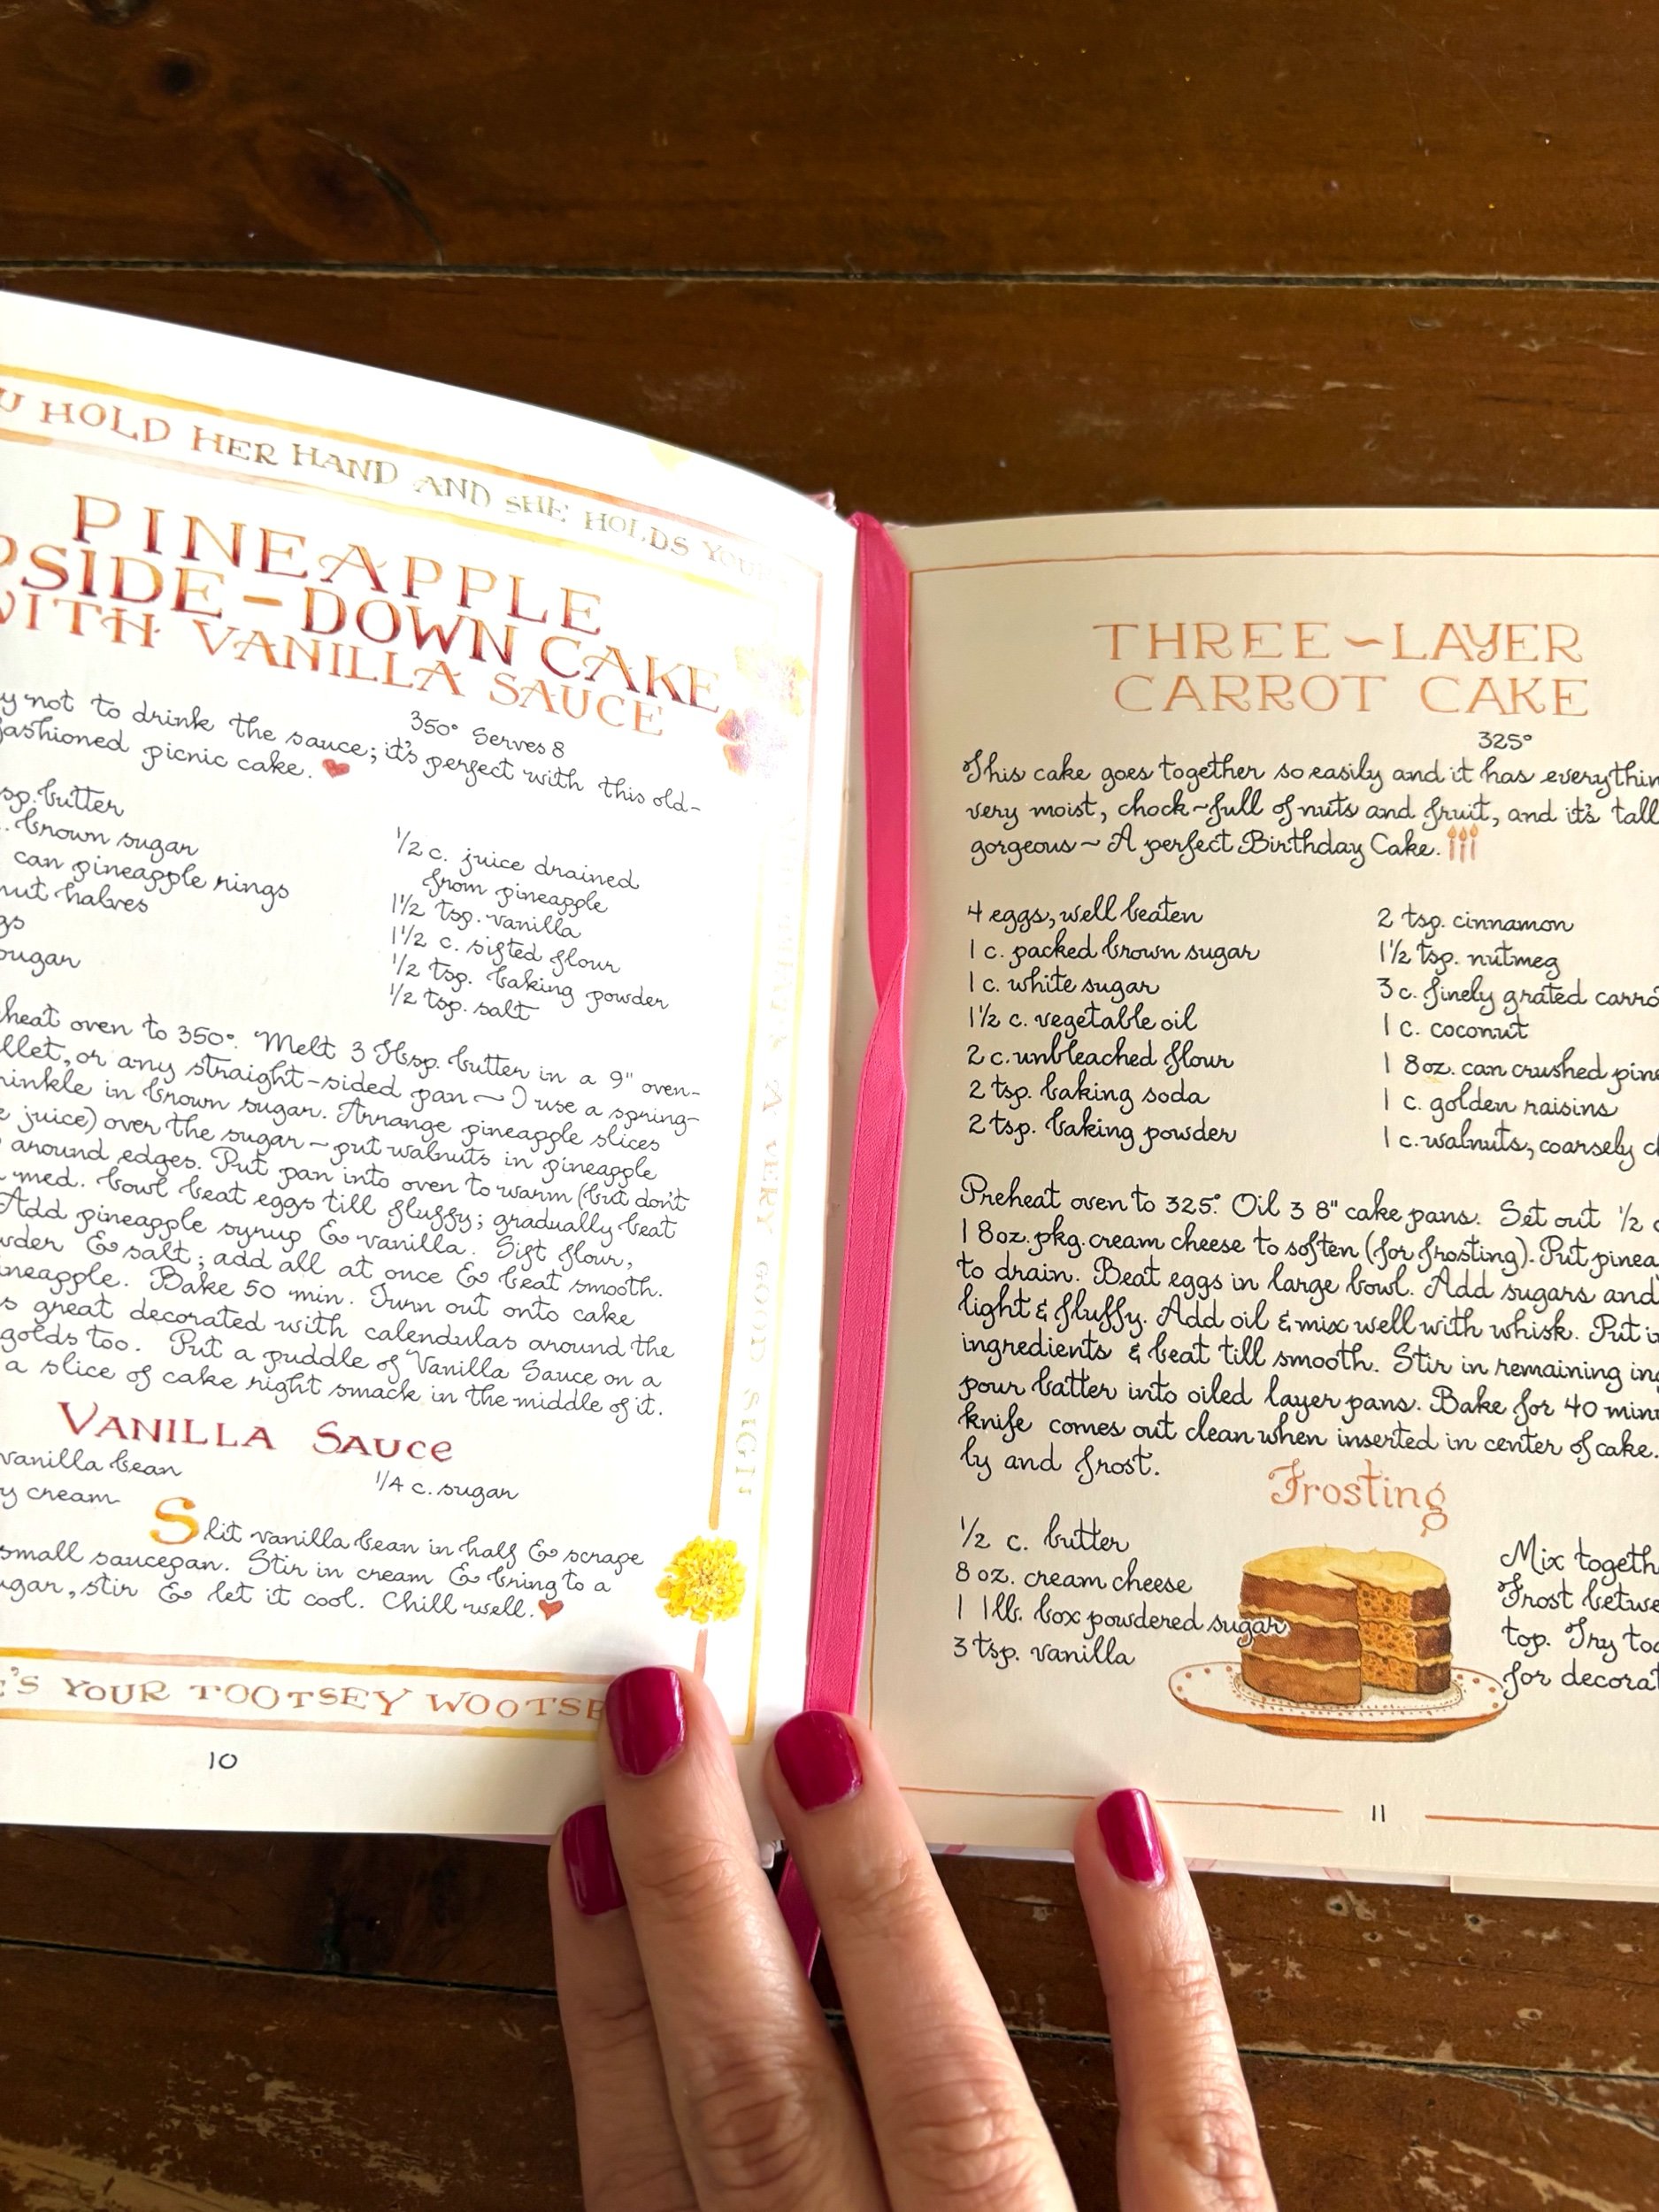 HOLD HER HAND AND SHE HOLDS YOUR
PINEAPPLE
SIDE-DOWN CAKE
WITH VANILLA SAUCE
350° Serves 8
not to drink the sauce; it's perfect with this old-
fashioned picnic cake.
butter
brown sugar
can pineapple rings
halves
sugar
1/2 c. juice drained
from pineapple
1 1/2 tsp. vanilla
1 1/2 c. sifted flour
1/2 tsp. baking powder
1/2 tsp. salt
heat oven to 350°. Melt 3 Tbsp. butter in a 9" oven-
or any straight-sided pan ~ I use a spring-
in brown sugar. Arrange pineapple slices
juice) over the sugar ~ put walnuts in pineapple
around edges. Put pan into oven to warm (but don't
med. bowl beat eggs till fluffy; gradually beat
Add pineapple syrup & vanilla. Sift flour,
& salt; add all at once & beat smooth.
Bake 50 min. Turn out onto cake
great decorated with calendulas around the
too. Put a puddle of Vanilla Sauce on a
a slice of cake right smack in the middle of it.
VANILLA SAUCE
vanilla bean
cream
1/4 c. sugar
Slit vanilla bean in half & scrape
small saucepan. Stir in cream & bring to a
stir & let it cool. Chill well.
A VERY GOOD SIGN
YOUR TOOTSEY
10
THREE~LAYER
CARROT CAKE
325°
This cake goes together so easily and it has
very moist, chock~full of nuts and fruit, and it's tall
gorgeous ~ A perfect Birthday Cake.
4 eggs, well beaten
1 c. packed brown sugar
1 c. white sugar
1 1/2 c. vegetable oil
2 c. unbleached flour
2 tsp. baking soda
2 tsp. baking powder
2 tsp. cinnamon
1 1/2 tsp. nutmeg
3 c. finely grated
1 c. coconut
1 8 oz. can crushed
1 c. golden raisins
1 c. walnuts, coarsely
Preheat oven to 325°. Oil 3 8" cake pans. Set out 1/2
1 8oz. pkg. cream cheese to soften (for frosting). Put
to drain. Beat eggs in large bowl. Add sugars and
light & fluffy. Add oil & mix well with whisk. Put
ingredients & beat till smooth. Stir in remaining
pour batter into oiled layer pans. Bake for 40
knife comes out clean when inserted in center of cake.
ly and frost.
Frosting
1/2 c. butter
8 oz. cream cheese
1 1lb. box powdered sugar
3 tsp. vanilla
Mix
Frost
top. Try
for
11